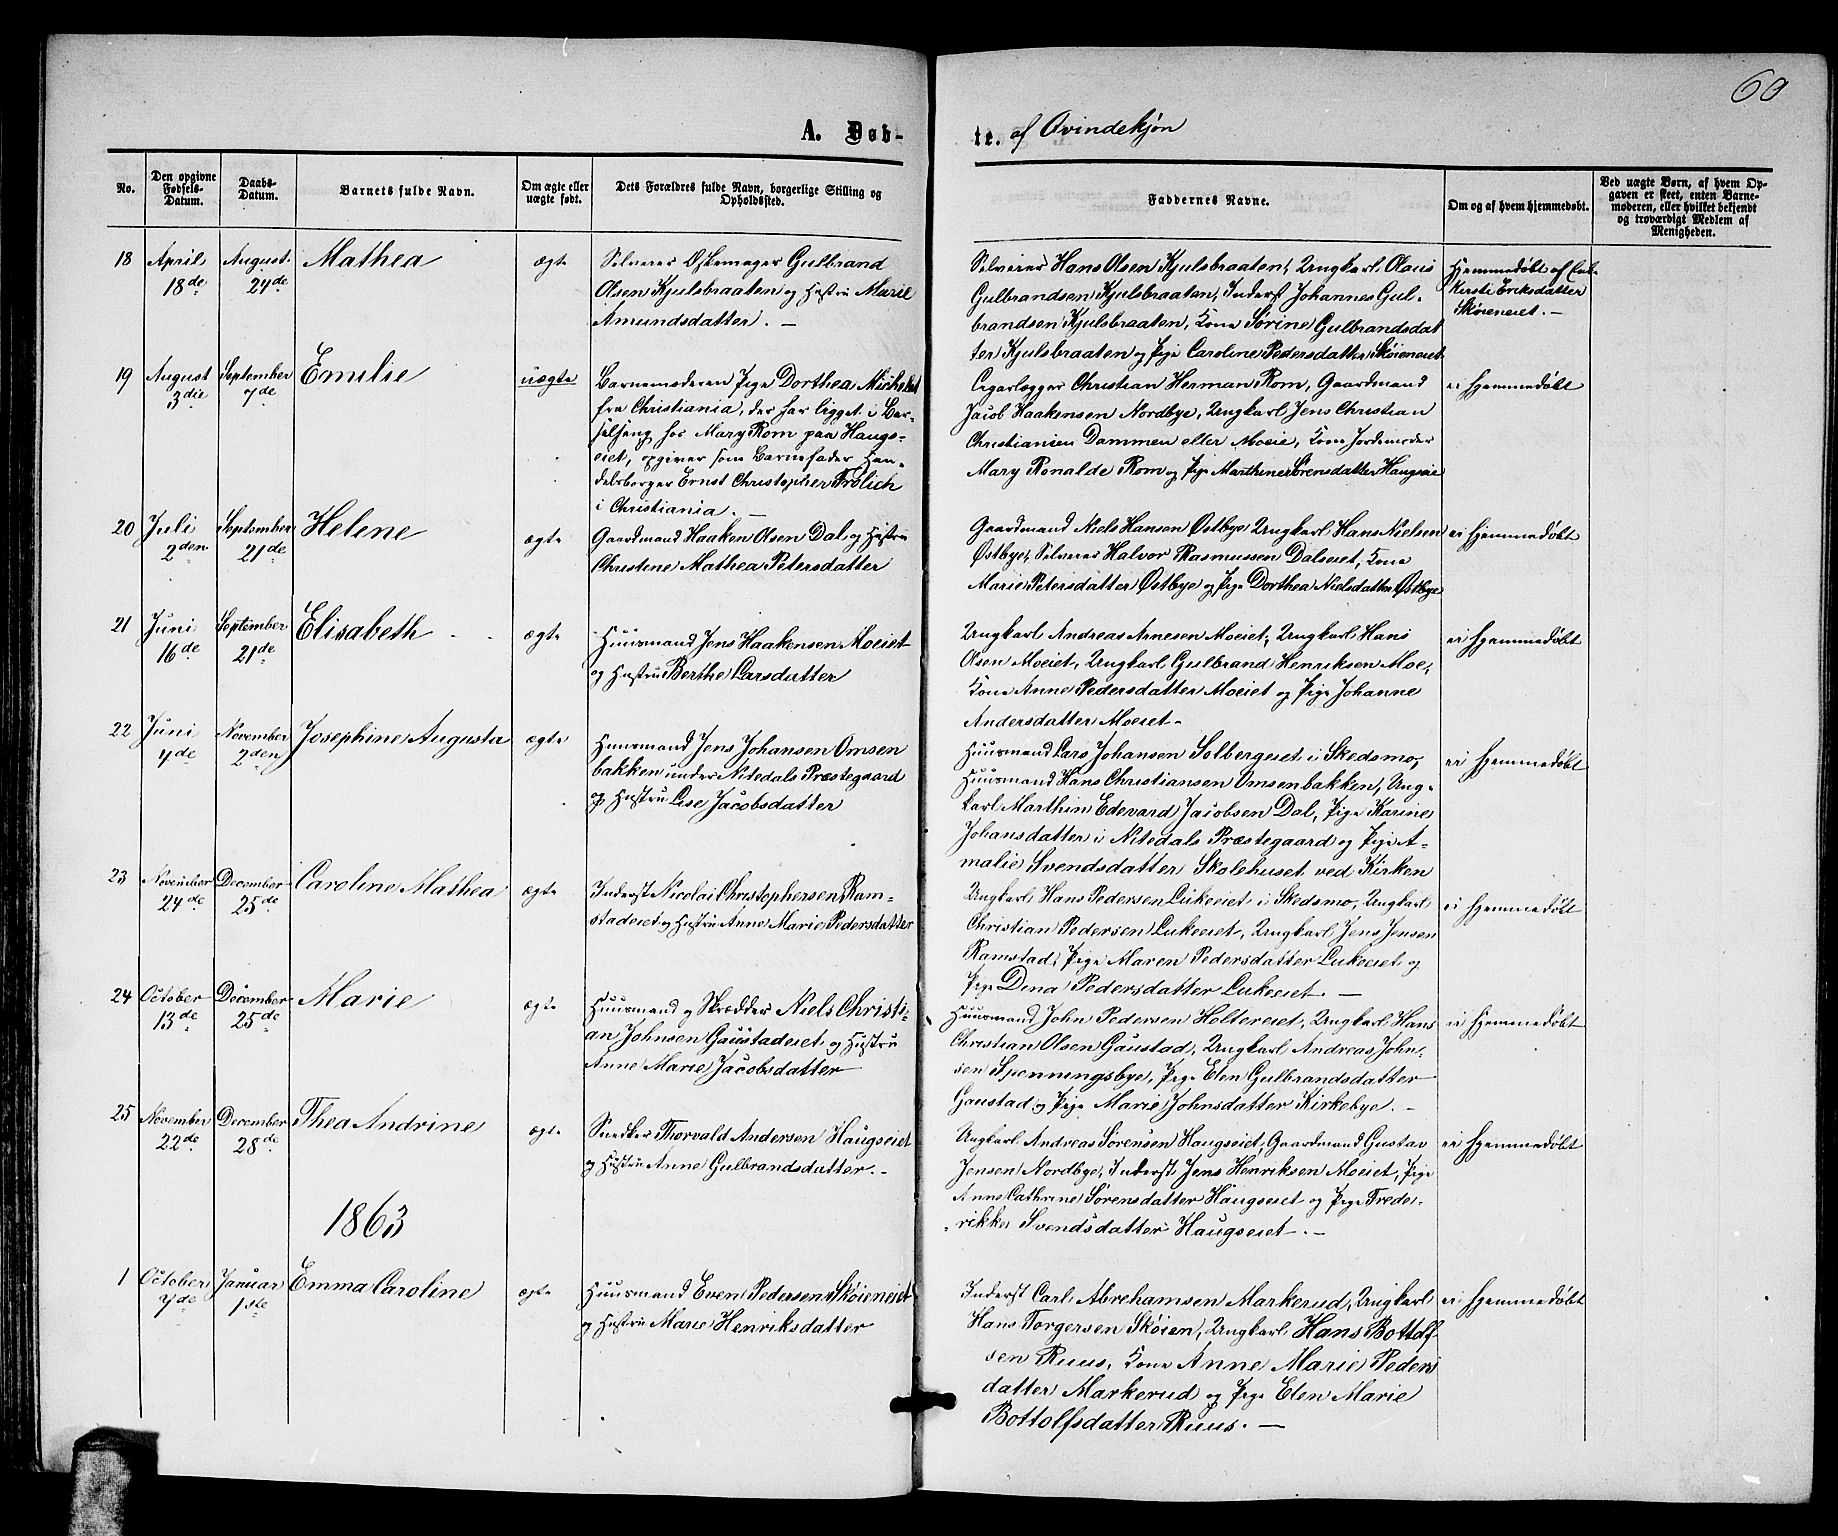 60
A. Døb-
te. af Qvindekjøn
No.
Den opgivne Fødsels-Datum.
Daabs-Datum.
Barnets fulde Navn.
Om ægte eller uægte født.
Dets Forældres fulde Navn, borgerlige Stilling og Opholdssted.
Faddernes Navne.
Om og af hvem hjemmedøbt.
Ved uægte Børn, af hvem Op-
gaven er skeet, enten Barne-
moderen, eller hvilket bekjendt
og troværdigt Medlem af
Menigheden.
18 April 18de August 24de Mathea ægte
Selveier Gulbrand
Olsen Kjulsbraaten og Hustru Marie
Amundsdatter. –
Selveier Hans Olsen Kjulsbraaten, Ungkarl Olaus
Gulbrandsen Kjulsbraaten, Inderst Johannes Gul-
brandsen Kjulsbraaten, Kone Sørine Gulbrandsdat
ter Kjulsbraaten og Pige Caroline Pedersdatter Skøieneiet
Hjemmedøbt af
Kirsti Eriksdatter
Skøieneiet. –
19 August 3die September 7de Emilie uægte
Barnemoderen Pige Dorthea Michelet
fra Christiania, der har ligget i Bar-
selseng hos Mary Rom paa Haugs-
eiet, opgiver som Barnefader Han-
delsborger Ernst Christopher Frölich
i Christiania. –
Cigarlægger Christian Herman Rom, Gaardmand
Jacob Haakensen Nordbye, Ungkarl Jens Christian
Christiansen Dammen eller Moeie, Kone Jordemoder
Mary Ronalde Rom og Pige Marthine Sörensdatter Haugseie
ei hjemmedøbt
20 Juli 2den September 21de Helene ægte
Gaardmand Haaken Olsen Dal og Hustru
Christine Mathea Petersdatter
Gaardmand Niels Hansen Østbye, Ungkarl Hans Nielsen
Østbye, Selveier Halvor Rasmussen Dalseiet, Kone
Marie Petersdatter Østbye og Pige Dorthea Nielsdatter Østbye
ei hjemmedøbt
21 Juni 16de September 21de Elisabeth ægte
Huusmand Jens Haakensen Moeiet
og Hustru Berthe Larsdatter
Ungkarl Andreas Arnesen Moeiet, Ungkarl Hans
Olsen Moeiet, Ungkarl Gulbrand Henriksen Moe,
Kone Anne Pedersdatter Moeiet og Pige Johanne
Andersdatter Moeiet –
ei hjemmedøbt
22 Juni 4de November 2den Josephine Augusta ægte
Huusmand Jens Johansen Omsen
bakken under Nitedals Præstegaard
og Hustru Lise Jacobsdatter
Huusmand Lars Johansen Solbergeiet i Skedsmo,
Huusmand Hans Christiansen Omsenbakken, Ung-
karl Marthin Edevard Jacobsen Dal, Pige Karine
Johansdatter i Nitedals Præstegaard og Pige A-
malie Svendsdatter Skolehuset ved Kirken
ei hjemmedøbt
23 November 24de December 25de Caroline Mathea ægte
Inderst Nicolai Christophersen Ram-
stadeiet og Hustru Anne Marie Pedersdatter
Ungkarl Hans Pedersen Lukeeiet i Skedsmo, Ungkarl
Christian Pedersen Lukeeiet, Ungkarl Jens Jensen
Ramstad, Pige Maren Pedersdatter Lukeeiet og
Pige Dina Pedersdatter Lukeeiet –
ei hjemmedøbt
24 October 13de December 25de Marie ægte
Huusmand og Skrædder Niels Christi-
an Johnsen Gaustadeiet og Hustru
Anne Marie Jacobsdatter
Huusmand John Pedersen Holtereiet, Ungkarl Hans
Christian Olsen Gaustad, Ungkarl Andreas John-
sen Spenningsbye, Pige Elen Gulbrandsdatter
Gaustad og Pige Marie Johnsdatter Kirkebye. –
ei hjemmedøbt
25 November 22de December 28de Thea Andrine ægte
Snedker Thorvald Andersen Haugseiet
og Hustru Anne Gulbrandsdatter. –
Ungkarl Andreas Sørensen Haugseiet, Gaardmand Gustav
Jensen Nordbye, Inderst Jens Henriksen Moeiet, Pige
Anne Cathrine Sørensdatter Haugseiet og Pige Frede-
rikke Svendsdatter Haugseiet. –
ei hjemmedøbt
1863
1 October 7de Januar 1ste Emma Caroline ægte
Huusmand Even Pedersen Skøieneiet
og Hustru Marie Henriksdatter
Inderst Carl Abrehamsen Markerud, Ungkarl
Hans Torgersen Skøien, Ungkarl Hans Bottolf
sen Ruus, Kone Anne Marie Peders
datter Markerud og Pige Elen Marie
Bottolfsdatter Ruus. –
ei hjemmedøbt